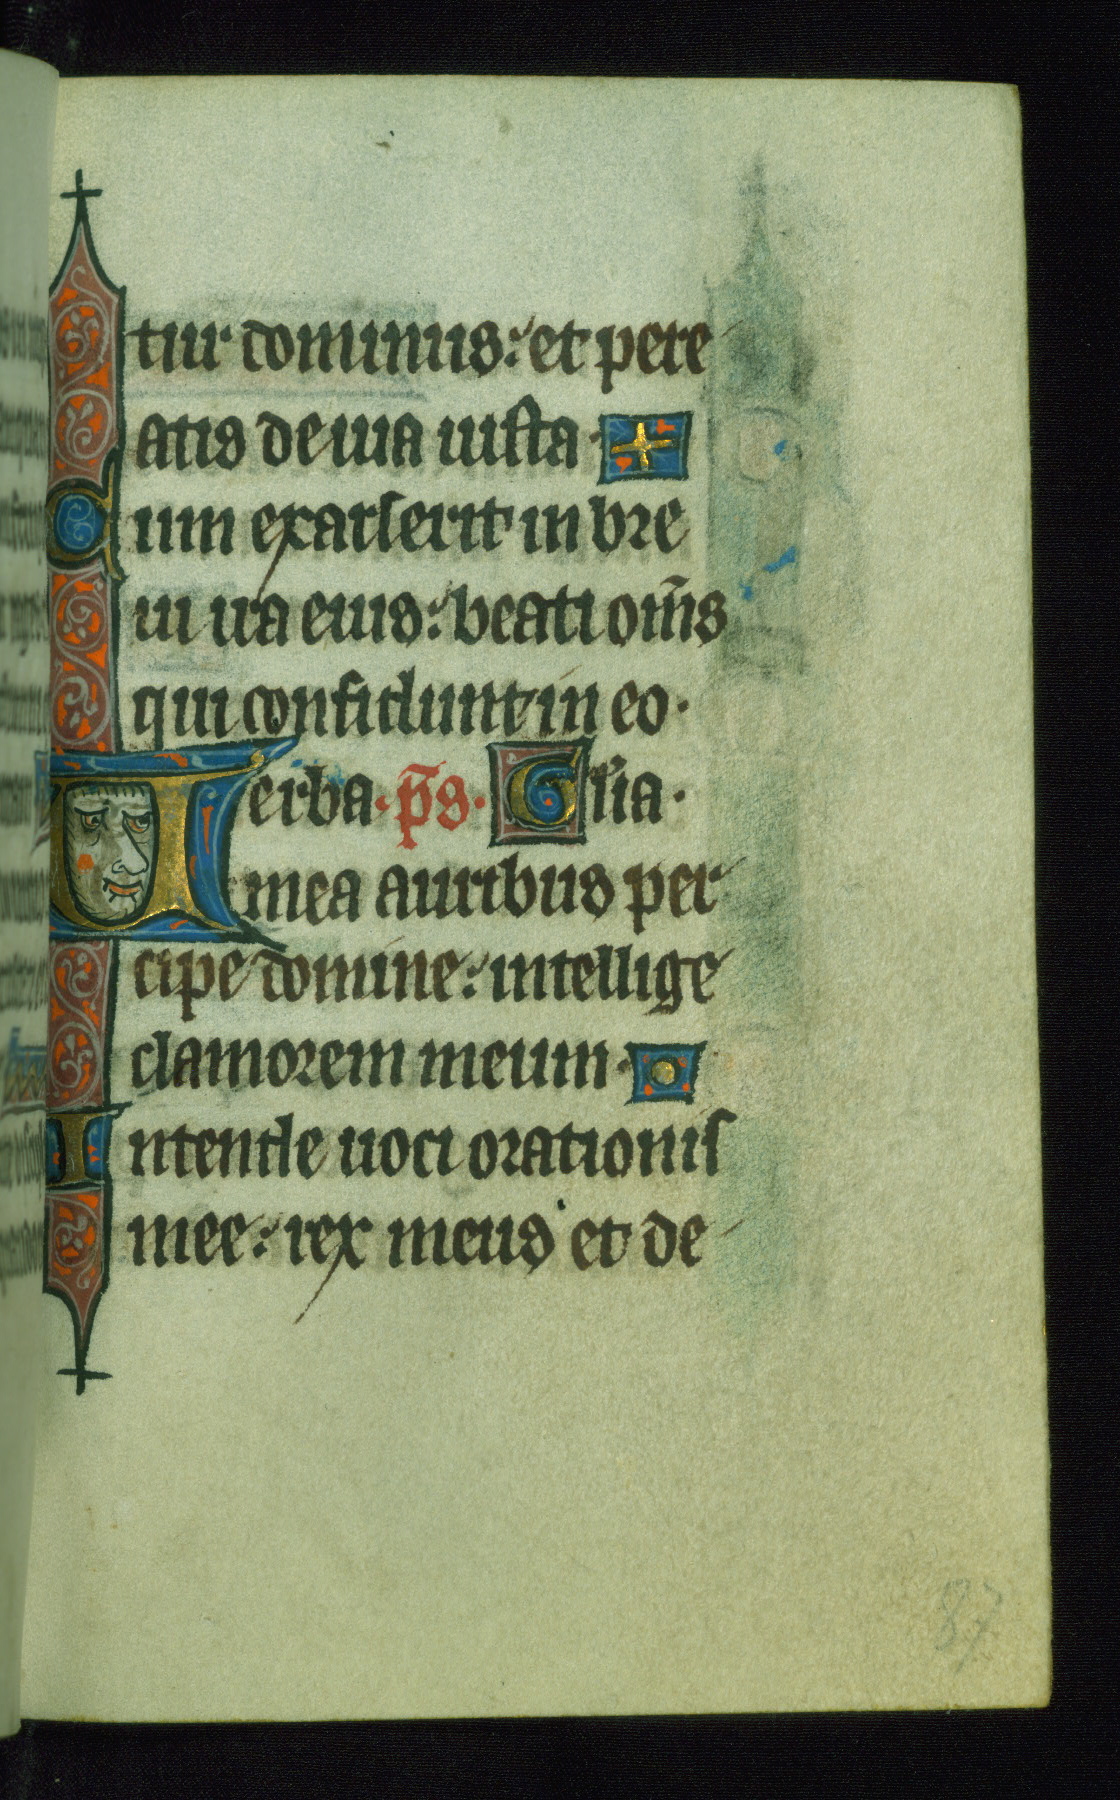 tur dominus: et pere
atis de uia iusta ·
Cum exarserit in bre
ui ira eius: beati om̄s
qui confidunt in eo ·
Uerba · p̄s · Gl̄ia ·
mea auribus per
cipe domine: intellige
clamorem meum ·
Intende uoci orationis
mee: rex meus et de
87